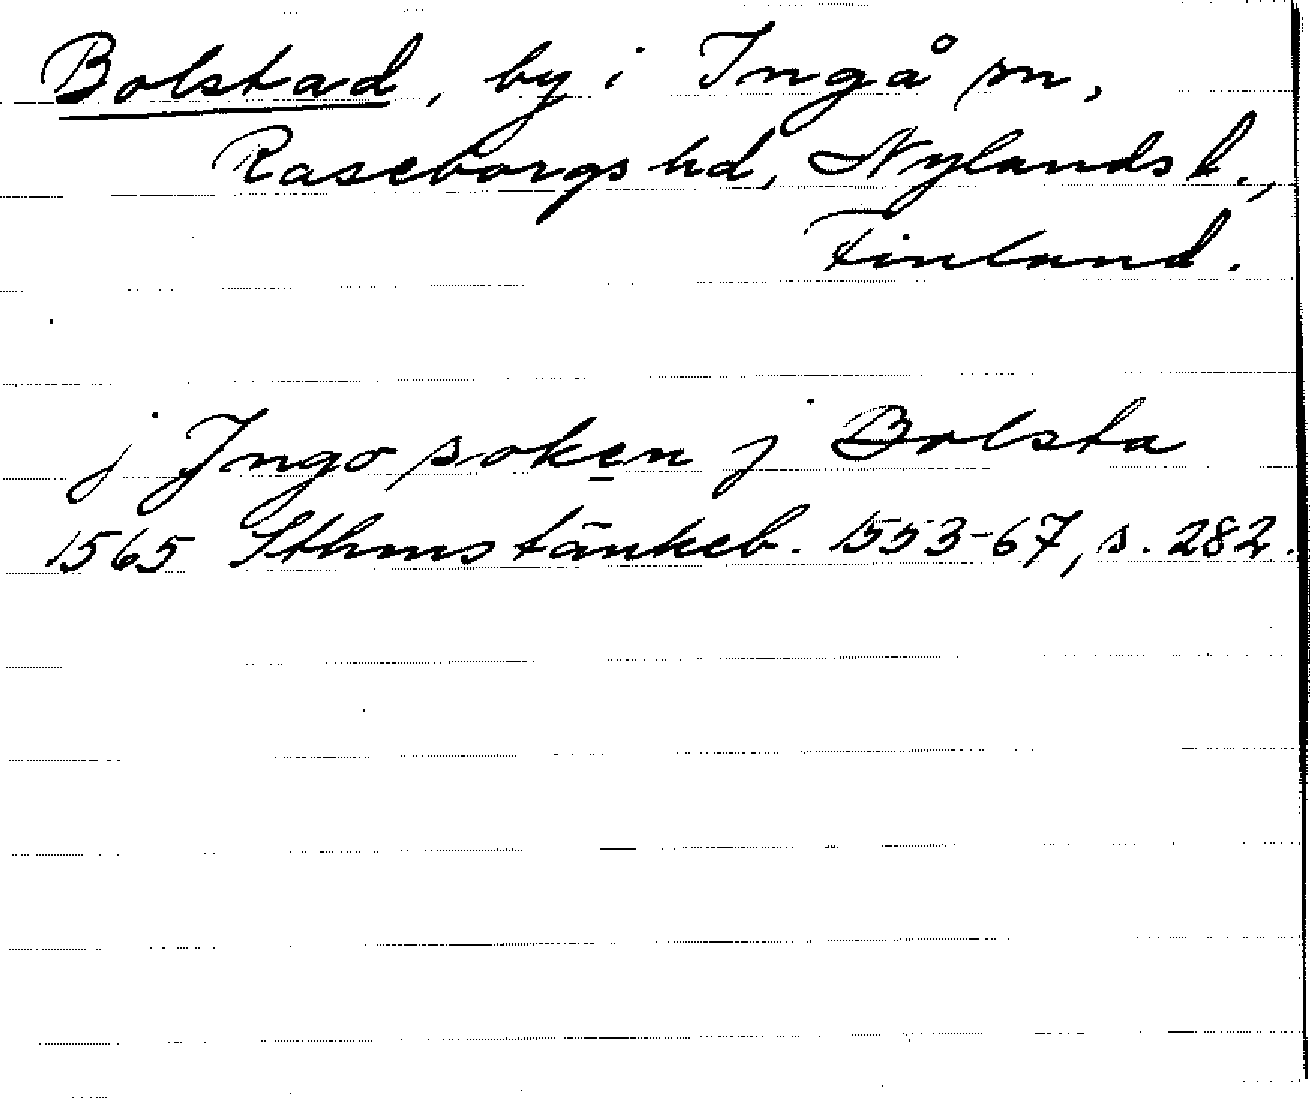 Bolstad, by i Ingå sn,
Raseborgs hd, Nylands l.,
Finland.
j Jngo soken j Bolsta
1565 Sthms tänkeb. 1553-67, s. 282.